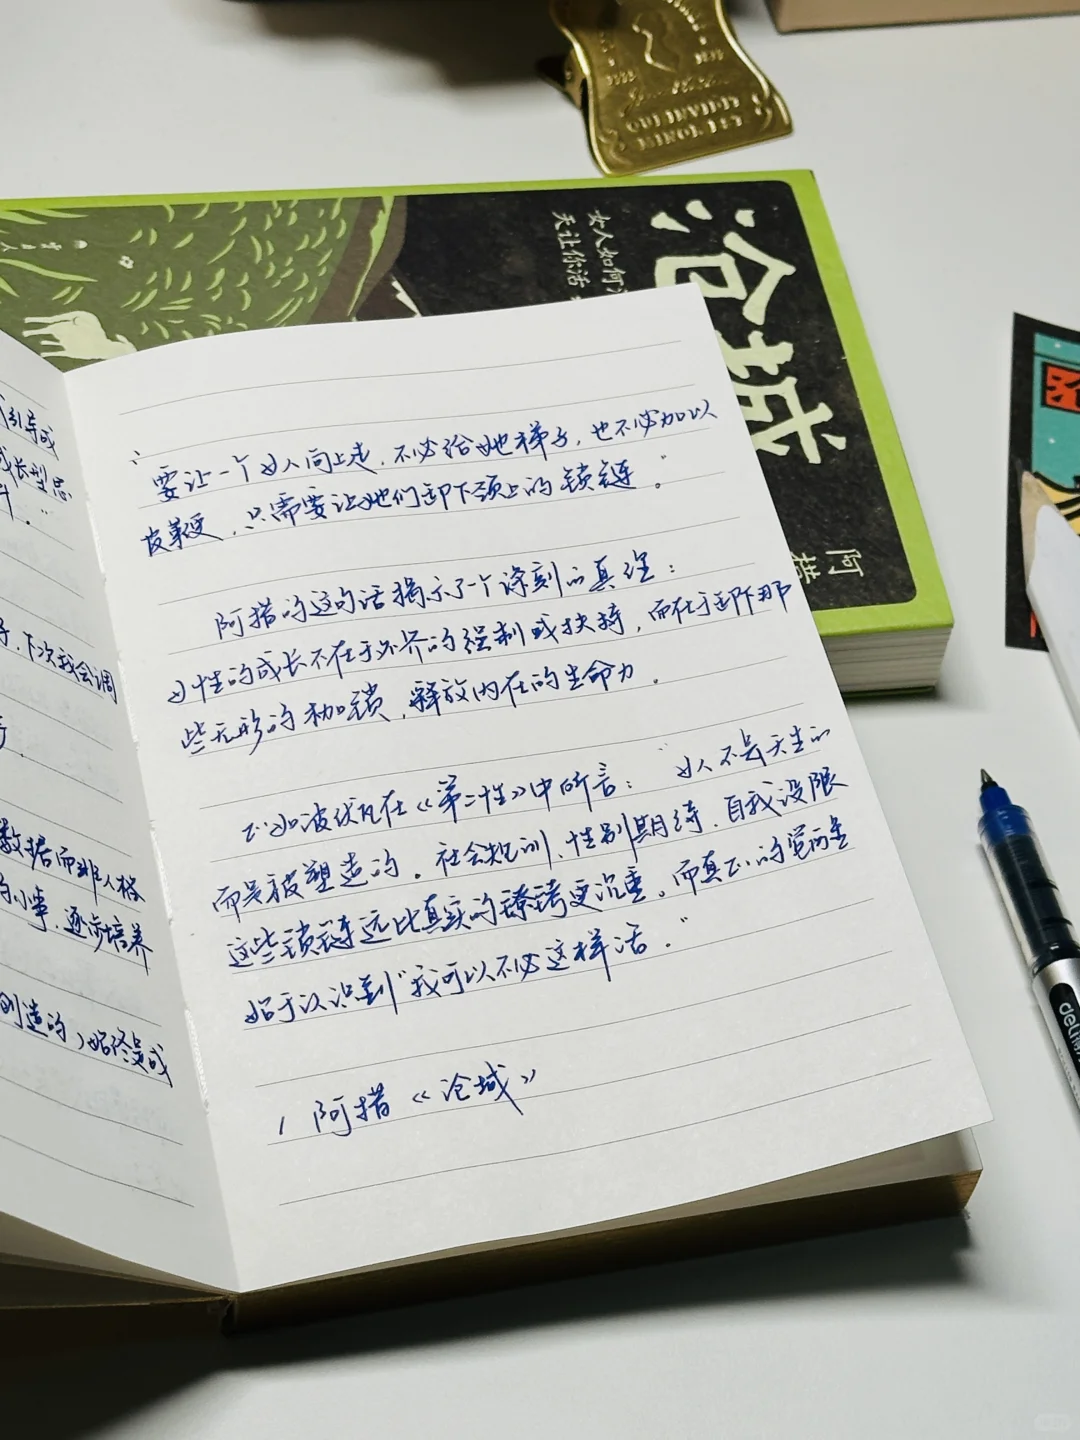 QUI INVIDET
MINOR EST
沧城
女人如何
天让你活
阿
引导成
成长型思
下次我会调
数据而非人格
的小事，逐步培养
创造的，始终是成
“要让一个女人向上走，不必给她梯子，也不必加以
皮鞭，只需要让她们卸下颈上的锁链。”
阿措的这句话揭示了一个深刻的真理：
女性的成长不在于外界的强制或扶持，而在于卸下那
些无形的枷锁，释放内在的生命力。
正如波伏瓦在《第二性》中所言：“女人不是天生的
而是被塑造的。社会规训、性别期待、自我设限
这些锁链远比真实的镣铐更沉重，而真正的觉醒
始于认识到“我可以不必这样活。”
/ 阿措《沧城》
deli